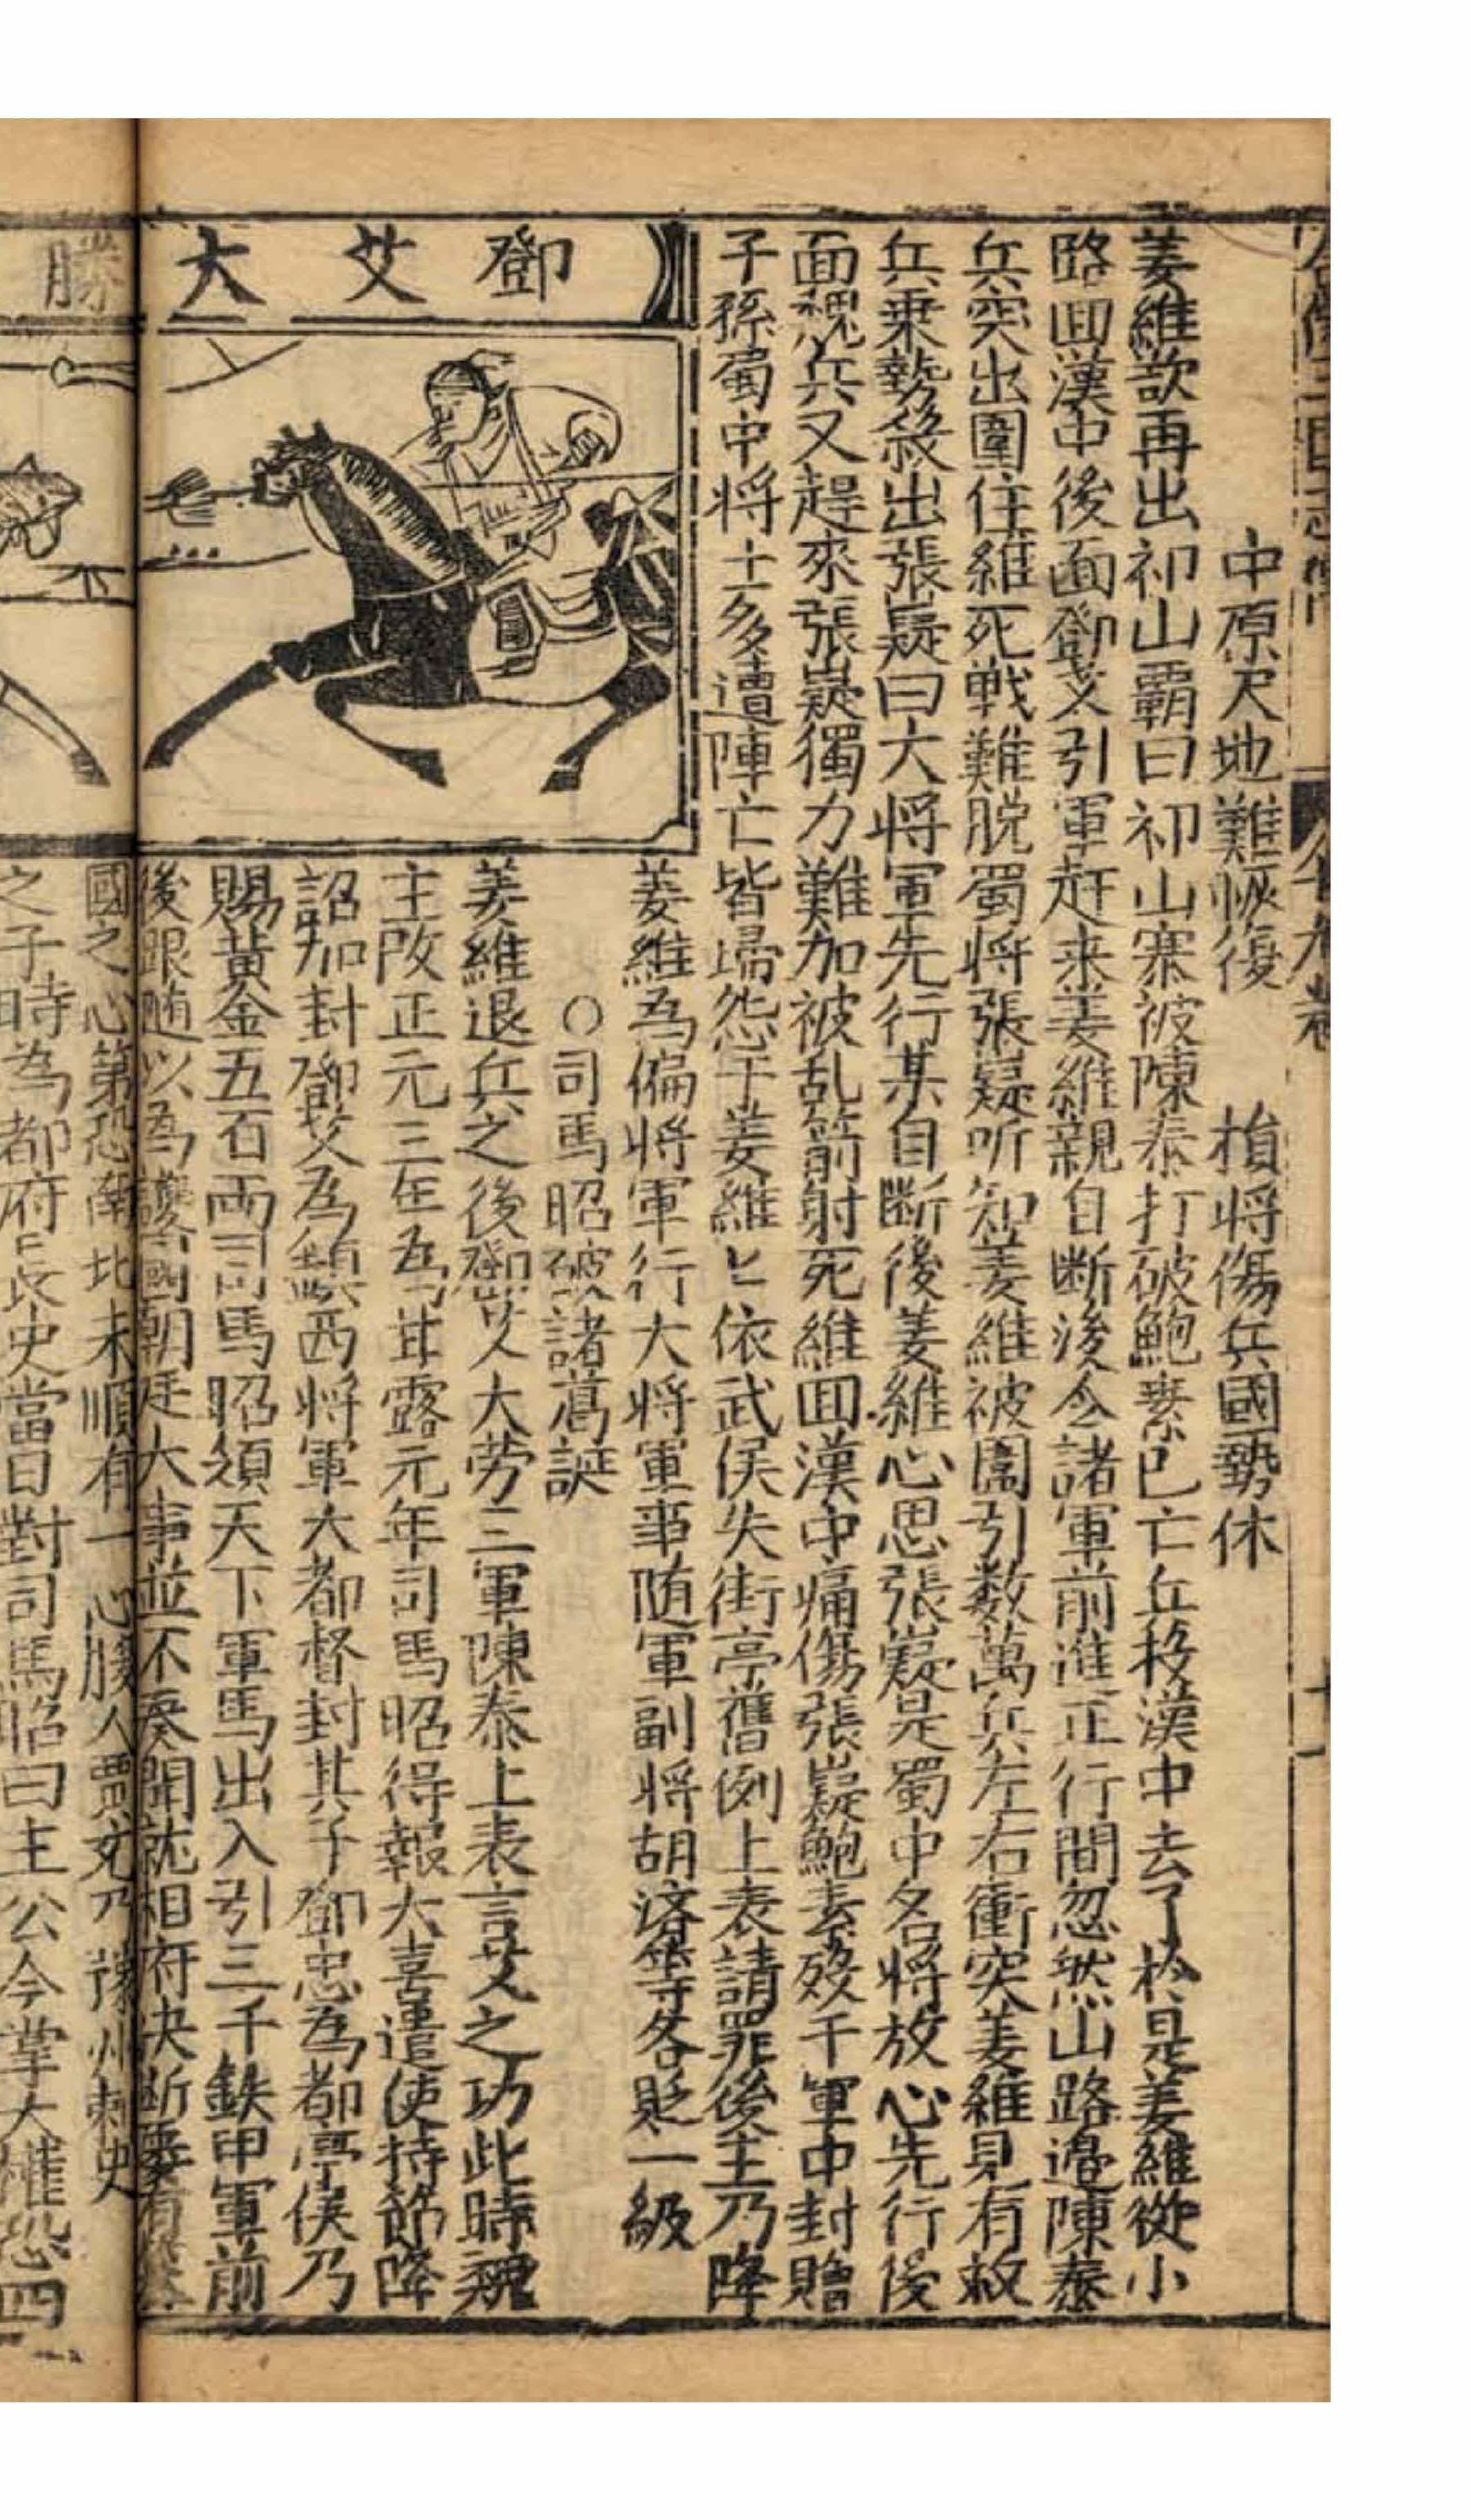 中原尺地難恢復　損將傷兵國勢休
姜維欲再出祁山覇曰祁山寨被陳泰打破鮑素已亡兵投漢中去了於是姜維從小
路囬漢中後面鄧艾引軍赶来姜維親自断後令諸軍前進正行間忽然山路邉陳泰
兵突出圍住維死戰難脱蜀将張嶷听知姜維被圍引数萬兵左右衝突姜維見有救
兵乗勢殺出張嶷曰大將軍先行某自断後姜維心思張嶷是蜀中名将放心先行後
面魏兵又趕來張嶷獨力難加被乱箭射死維囬漢中痛傷張嶷鮑素歿于軍中封贈
子孫蜀中将士多遭陣亡皆歸怨于姜維〻依武侯失街亭舊例上表請罪後主乃降
鄧艾大
姜維為偏將軍行大将軍事随軍副将胡済等各貶一級
○司馬昭破諸葛誕
姜維退兵之後鄧艾大劳三軍陳泰上表言艾之功此時魏
主改正元三年為甘露元年司馬昭得報大喜遣使持節降
詔加封鄧艾為鎮西将軍大都督封其子鄧忠為都亭侯乃
賜黄金五百両司馬昭領天下軍馬出入引三千鉄甲軍前
後跟随以為護衛朝廷大事並不奏聞就相府决断
勝
國之心第恐南北未順有一心腹人賈充乃豫州刺史
之子時為都府長史當日對司馬昭曰主公今掌大權恐四